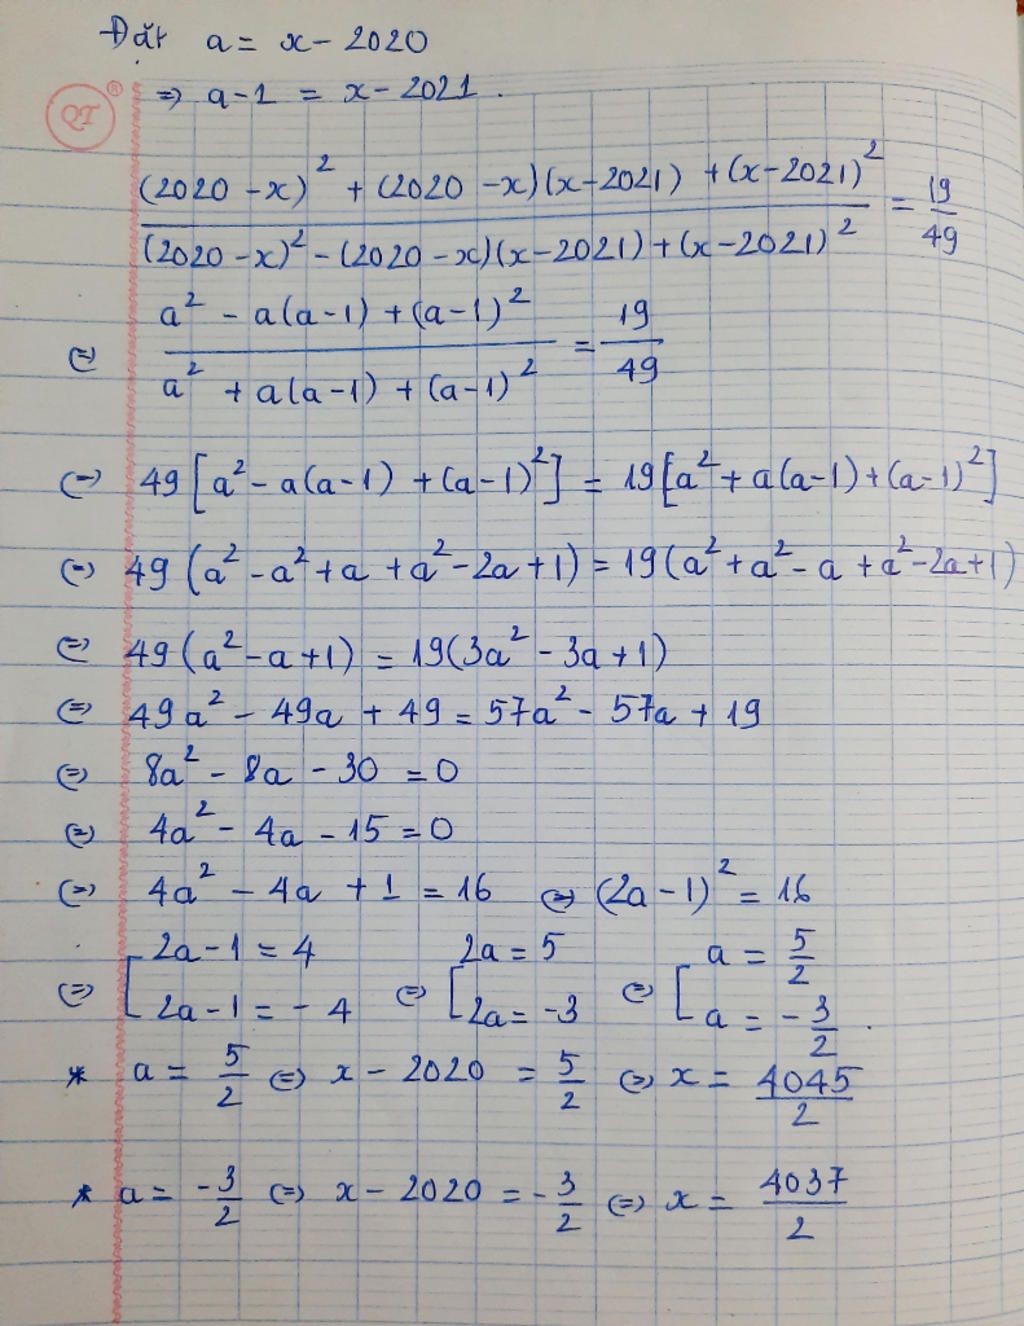 Đặt a = x - 2020
⇒ a-1 = x - 2021.
QT ®
\frac{(2020-x)^2 + (2020-x)(x-2021) + (x-2021)^2}{(2020-x)^2 - (2020-x)(x-2021) + (x-2021)^2} = \frac{19}{49}
⇔ \frac{a^2 - a(a-1) + (a-1)^2}{a^2 + a(a-1) + (a-1)^2} = \frac{19}{49}
⇔ 49[a^2 - a(a-1) + (a-1)^2] = 19[a^2 + a(a-1) + (a-1)^2]
⇔ 49(a^2 - a^2 + a + a^2 - 2a + 1) = 19(a^2 + a^2 - a + a^2 - 2a + 1)
⇔ 49(a^2 - a + 1) = 19(3a^2 - 3a + 1)
⇔ 49a^2 - 49a + 49 = 57a^2 - 57a + 19
⇔ 8a^2 - 8a - 30 = 0
⇔ 4a^2 - 4a - 15 = 0
⇔ 4a^2 - 4a + 1 = 16 ⇔ (2a-1)^2 = 16
⇔ [2a-1 = 4 ⇔ [2a = 5 ⇔ [a = \frac{5}{2}
2a-1 = -4 2a = -3 a = -\frac{3}{2}.
* a = \frac{5}{2} ⇔ x - 2020 = \frac{5}{2} ⇔ x = \frac{4045}{2}
* a = -\frac{3}{2} ⇔ x - 2020 = -\frac{3}{2} ⇔ x = \frac{4037}{2}